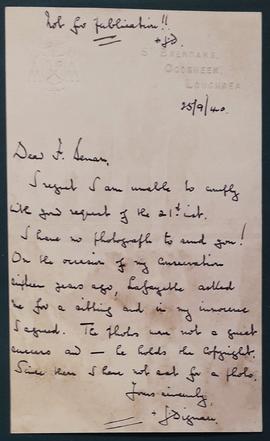 Not for Publication!!
+JD.
St Brendans,
Coorheen,
Loughrea
25/9/40.
Dear F. Senan,
I regret I am unable to comply
with your request of the 21st inst.
I have no photograph to send you!
On the occasion of my Consecration
sixteen years ago, Lafayette asked
me for a sitting and in my innocence
I agreed. The photos were not a great
success and — he holds the Copyright.
Since then I have not sat for a photo.
Yours sincerely,
+ JDignan.